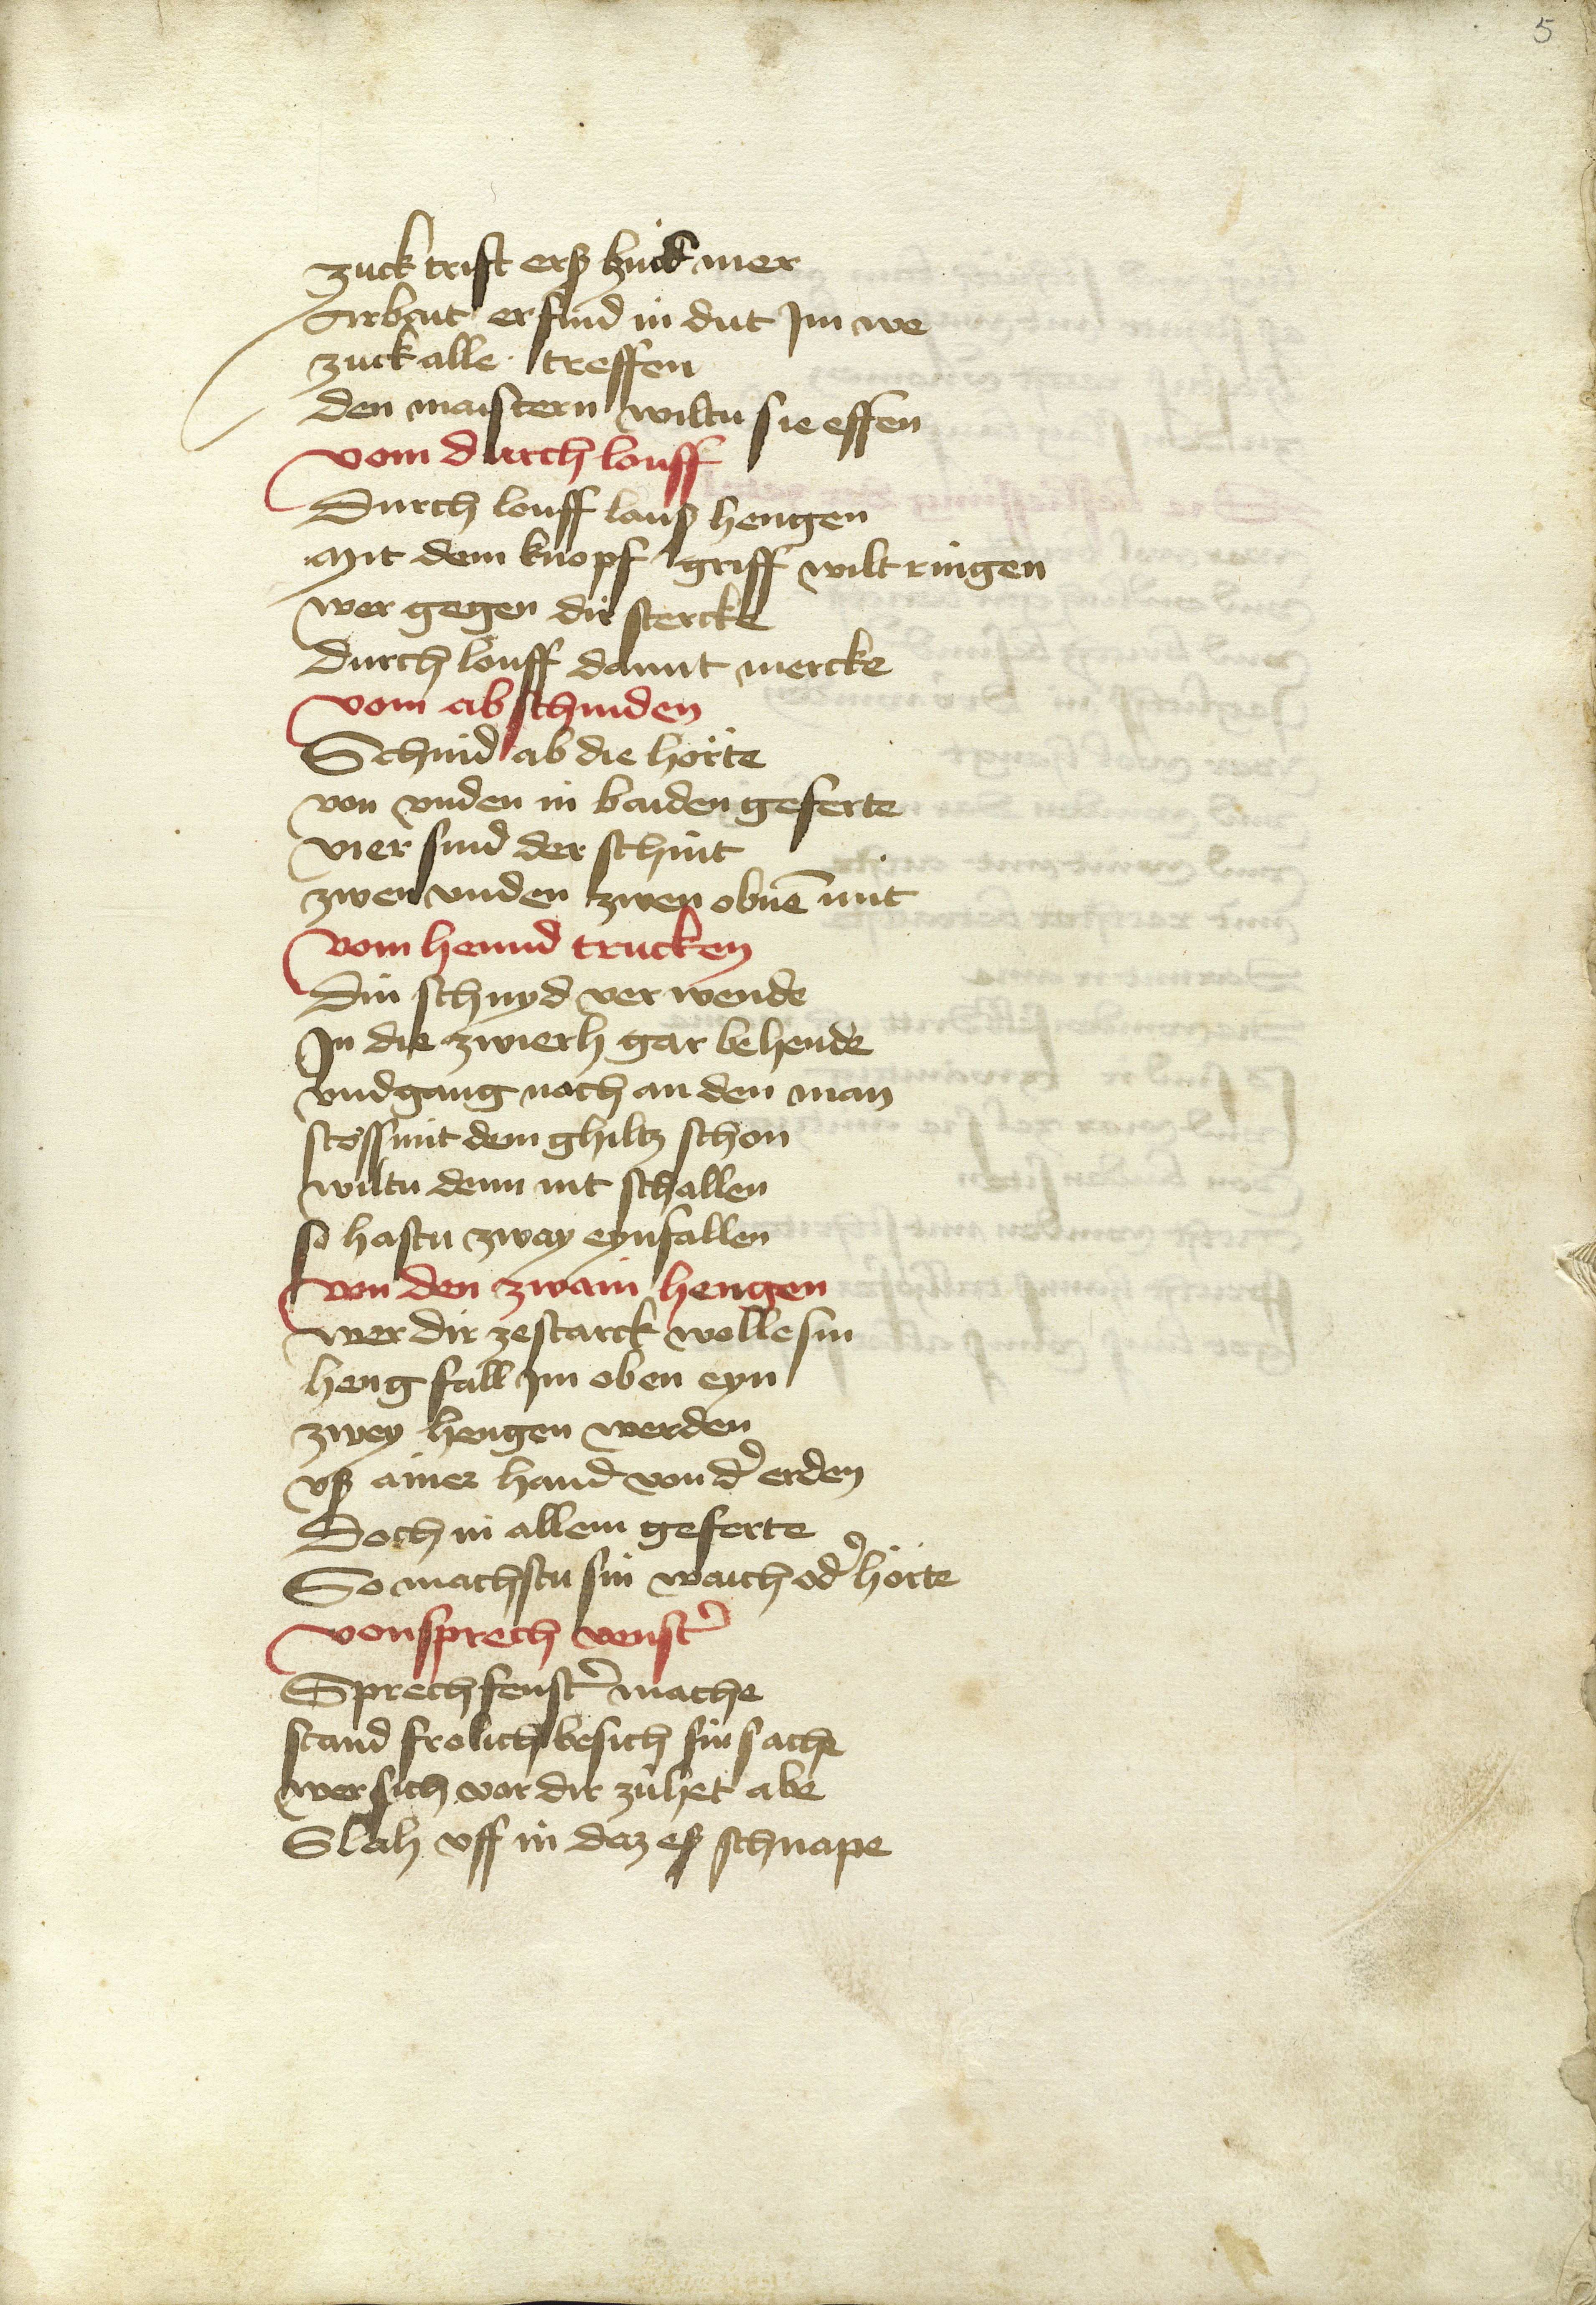 5
zuck trifft erß zuck mer
Arbait er find in dut Im we
zuck alle treffen
den maistern wiltu sie effen
vom durch louff
Durch louff lauß hengen
Mit dem knopf griff wilt ringen
wer gegen dir stercke
Durch löuff damit mercke
vom abschniden
Schnid ab die hörte
von vnden in baiden geferte
vier sind der schnit
zwen vnden zwen obnē mit
vom hennd trucken
Din schnyd ver wende
In die zwierh gar behende
vnd gang nach an den man
stoss mit dem ghiltz schon
wiltu denn nit schallen
so hastu zway eynfallen
von den zwain hengen
wer dir zestarck wolle sin
heng fall Im oben eyn
zwey hengen werden
vß ainer hand von dˀ erden
Doch in allem geferte
So machstu sin waich odˀ hörte
von sprech venstˀ
Sprechfenstˀ mache
stand frolich besich sin sache
wer sich vor dir zühet abe
Slah vff in daz eß schnape